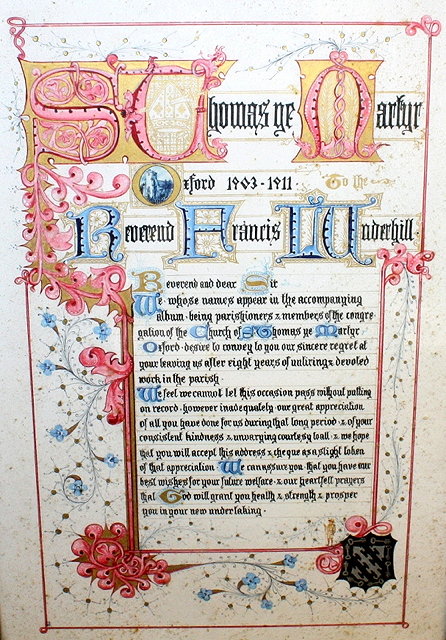 S. Thomas ye Martyr
Oxford 1903-1911 To the
Reverend Francis Underhill
Reverend and dear Sir
We whose names appear in the accompanying
album · being parishioners & members of the congre-
gation of the Church of S. Thomas ye Martyr
Oxford · desire to convey to you our sincere regret at
your leaving us after eight years of untiring & devoted
work in the parish
We feel we cannot let this occasion pass without putting
on record · however inadequately · our great appreciation
of all you have done for us during that long period · & of your
consistent kindness & unvarying courtesy to all · & we hope
that you will accept this address & cheque as a slight token
of that appreciation We can assure you that you have our
best wishes for your future welfare · & our heartfelt prayers
that God will grant you health & strength & prosper
you in your new undertaking ·